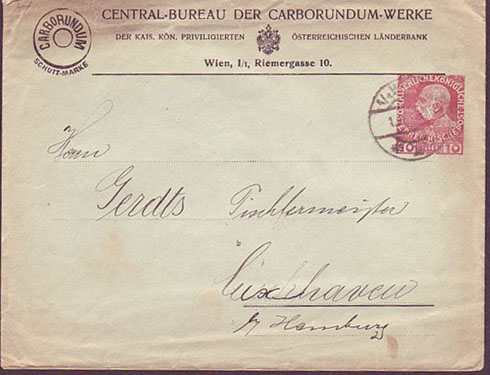 CARBORUNDUM
SCHUTZ-MARKE
CENTRAL-BUREAU DER CARBORUNDUM-WERKE
DER KAIS. KÖN. PRIVILIGIERTEN ÖSTERREICHISCHEN LÄNDERBANK
Wien, I/1, Riemergasse 10.
10 10
Herrn
Gerdts Tischlermeister
Cuxhaven
b/ Hamburg